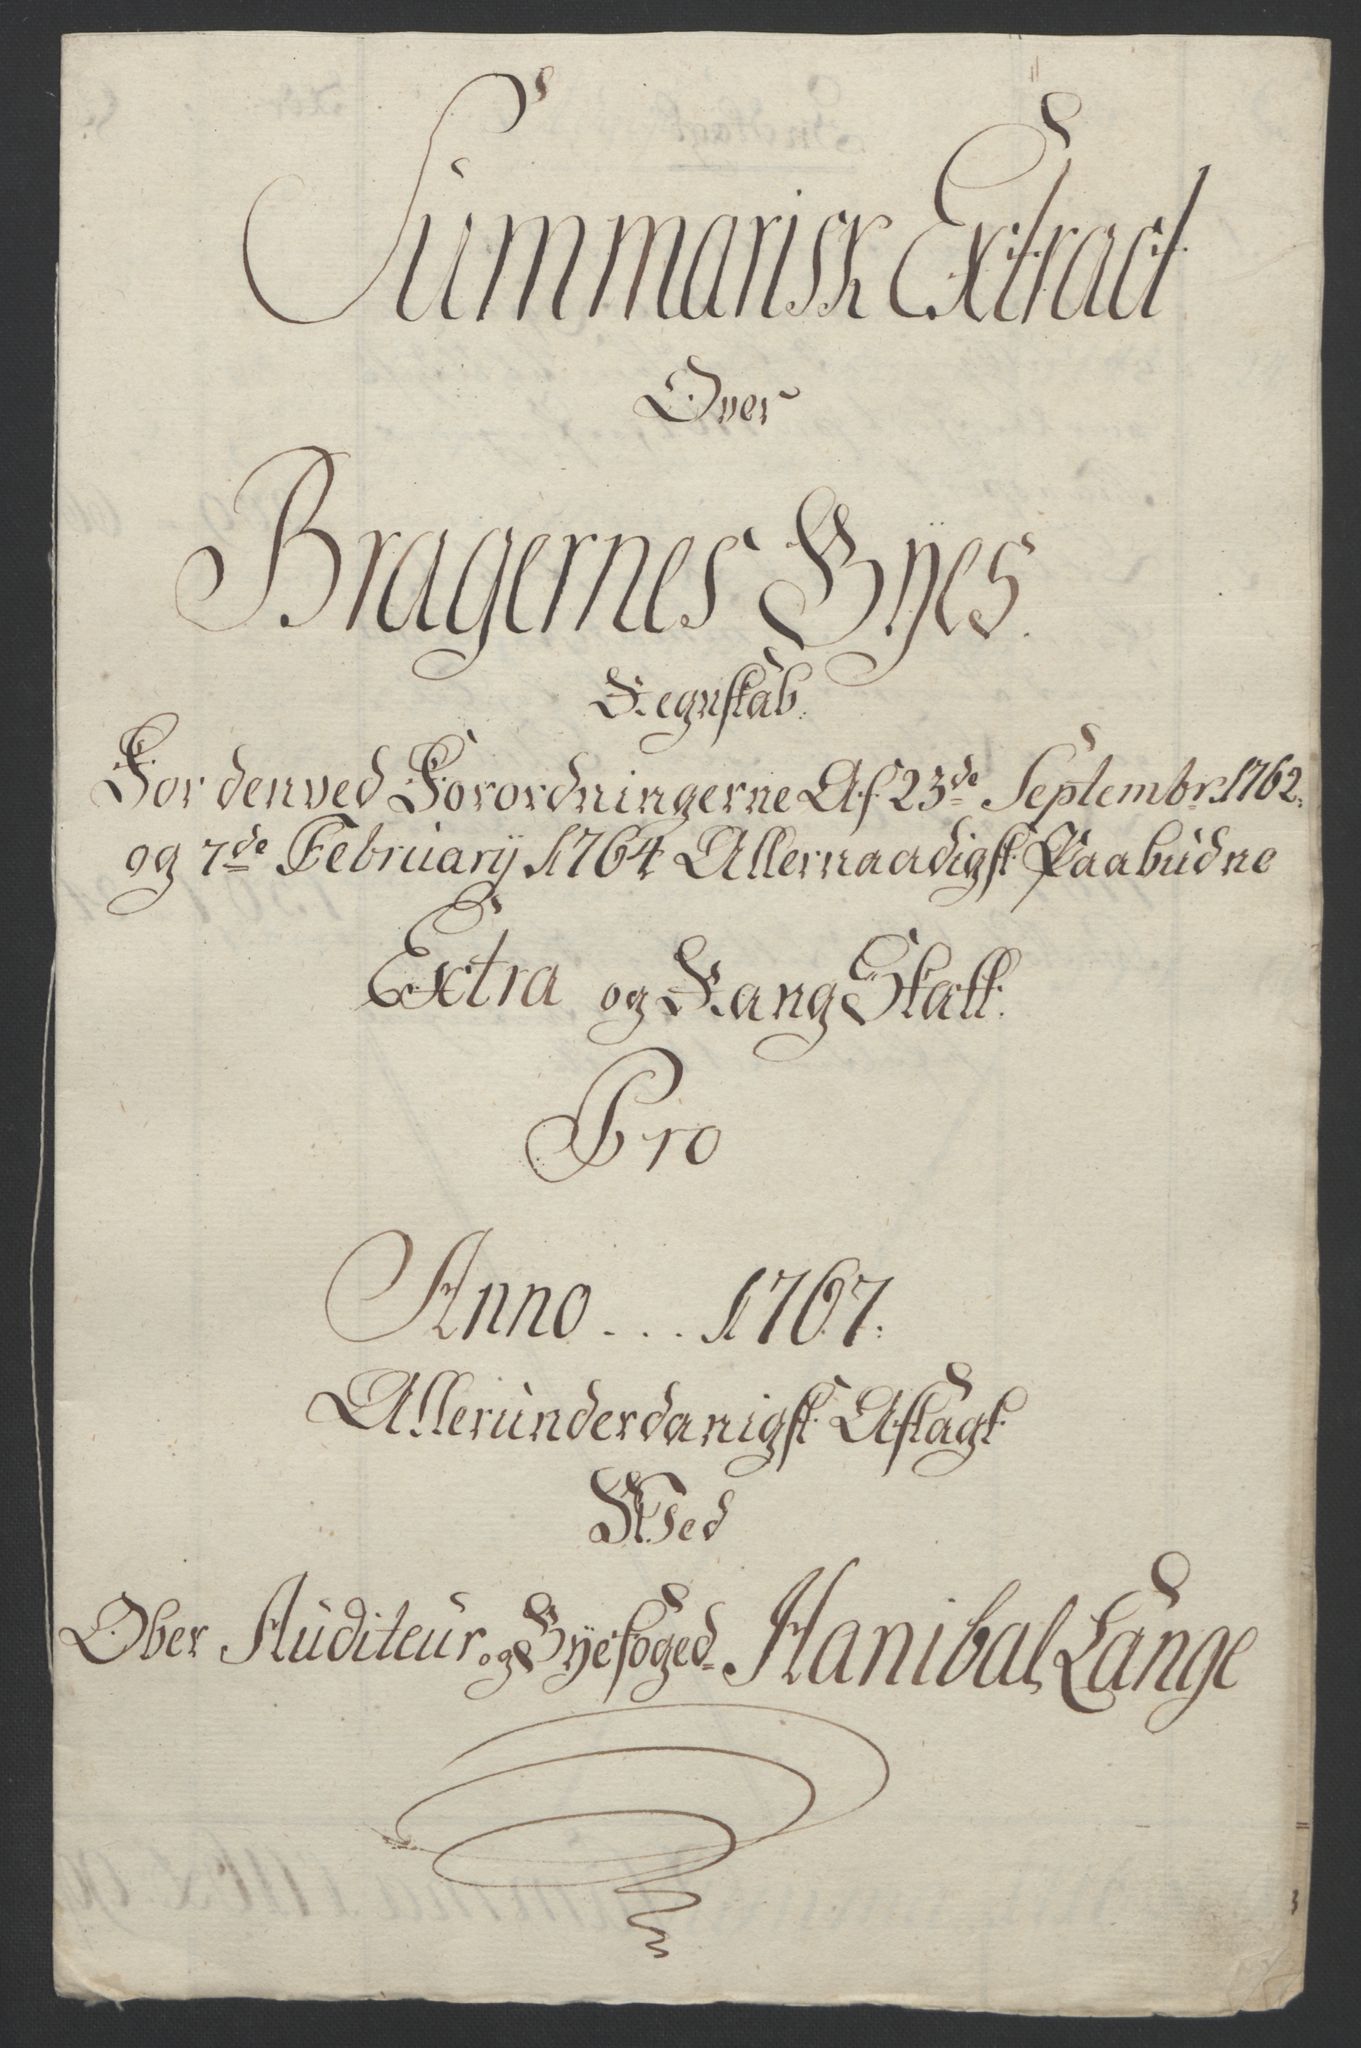 Summarisk Extract
Over
Bragernes Byes
Regnskab.
For den ved Forordningerne Af 23de Septembr. 1762.
og 7de February 1764 Allernaadigst Paabudne
Extra og Rang Skatt.
Pro
Anno . . . 1767.
Allerunderdanigst Aflagt
Med
Ober Auditeur og Byefoged Hanibal Lange